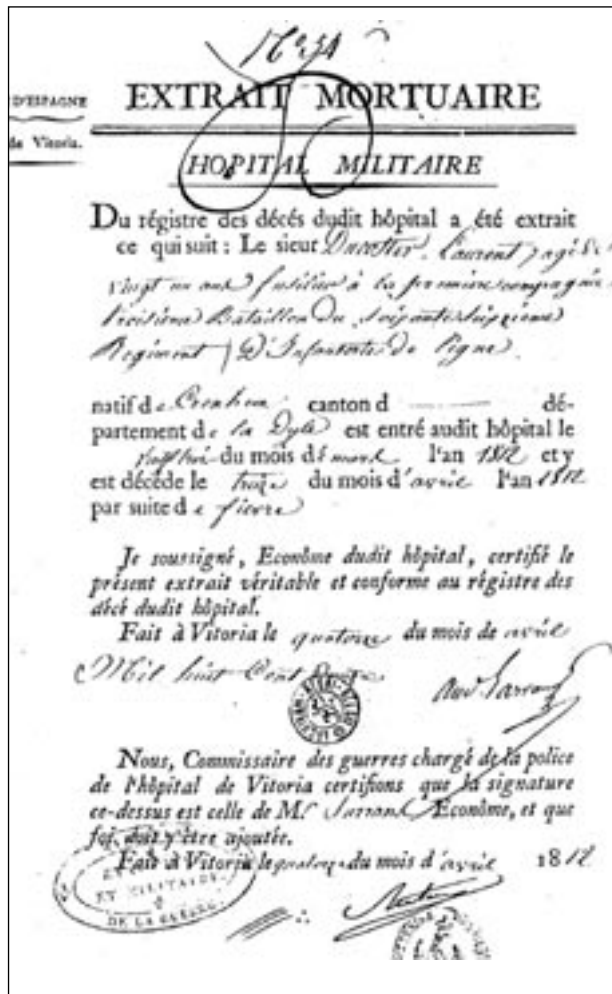 D'ESPAGNE
de Vitoria.
EXTRAIT MORTUAIRE
HOPITAL MILITAIRE
Du régistre des décés dudit hôpital a été extrait
ce qui suit : Le sieur Laurent, agé de
vingt un ans fusilier à la première compagnie
troisième Bataillon du soixante
Regiment D'Infanterie de ligne.
natif de canton d dé-
partement de la Dyle est entré audit hôpital le
du mois de l'an 1812 et y
est décédé le treize du mois d'avril l'an 1812
par suite de fievre
Je soussigné, Econôme dudit hôpital, certifié le
présent extrait véritable et conforme au régistre des
décé dudit hôpital.
Fait à Vitoria le quatorze du mois de avril
Mil huit Cent Douze
Nous, Commissaire des guerres chargé de la police
de l'hôpital de Vitoria certifions que la signature
ce-dessus est celle de Mr Sarrand Econôme, et que
foi doit y être ajoutée.
Fait à Vitoria le quatorze du mois d'avril 1812
ET MILITAIRE
DE LA GUERRE